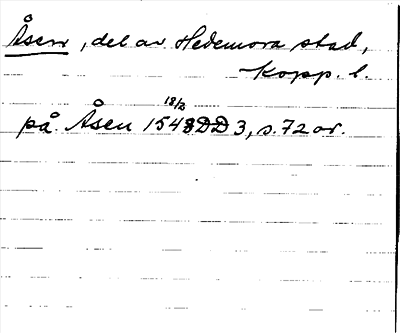 Åsen, del av Hedemora stad,
Kopp. l.
18/3
på Åsen 1548 DD 3, s. 72 or.